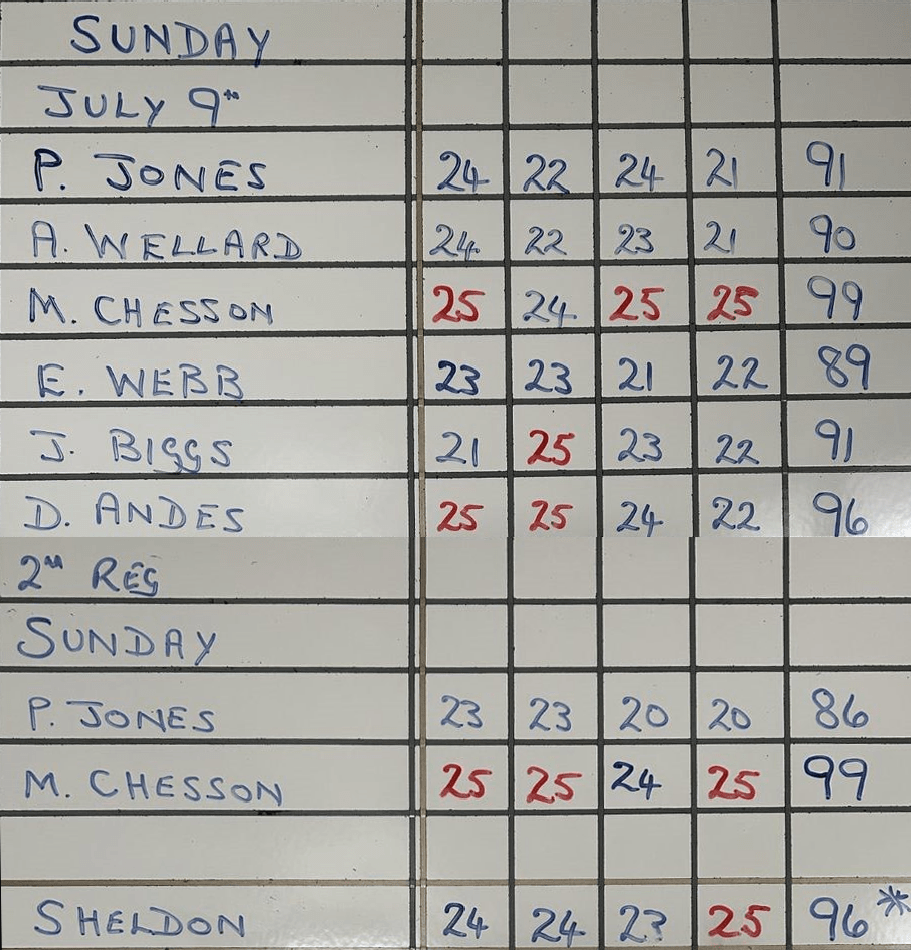 SUNDAY
JULY 9th
P. JONES 24 22 24 21 91
A. WELLARD 24 22 23 21 90
M. CHESSON 25 24 25 25 99
E. WEBB 23 23 21 22 89
J. BIGGS 21 25 23 22 91
D. ANDES 25 25 24 22 96
2nd REG
SUNDAY
P. JONES 23 23 20 20 86
M. CHESSON 25 25 24 25 99
SHELDON 24 24 23 25 96*